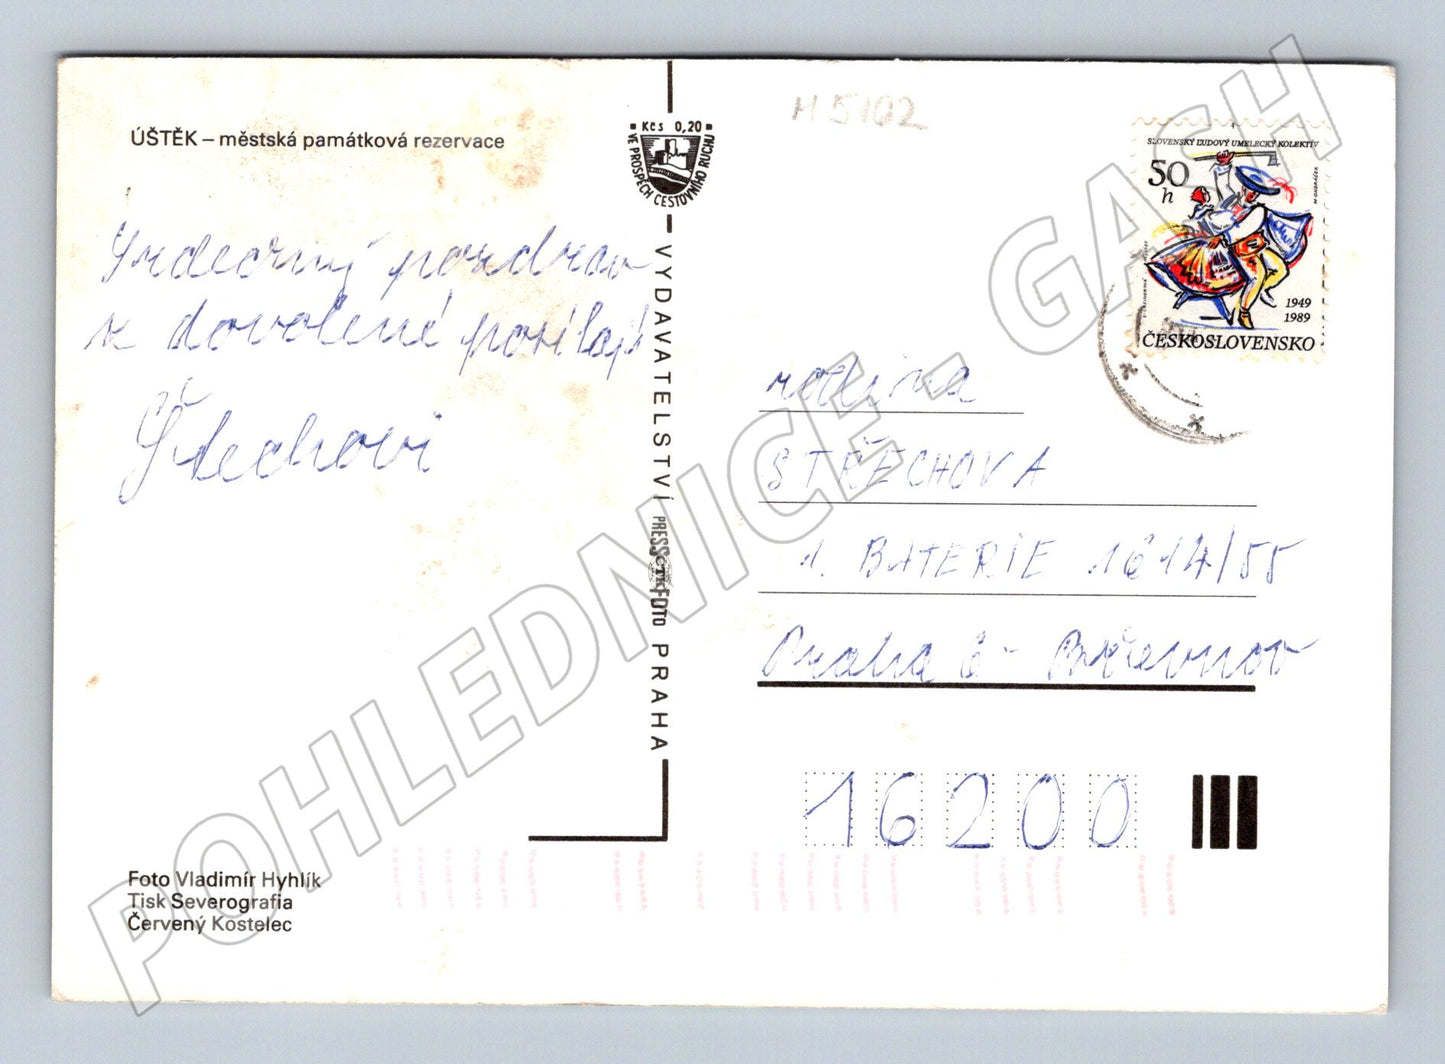 ÚŠTĚK – městská památková rezervace
Srdečný pozdrav
z dovolené posílají
Štechovi
Foto Vladimír Hyhlík
Tisk Severografia
Červený Kostelec
Kčs 0,20
VE PROSPĚCH CESTOVNÍHO RUCHU
VYDAVATELSTVÍ PRESSFOTO PRAHA
ČTK
M 5102
SLOVENSKÝ ĽUDOVÝ UMELECKÝ KOLEKTÍV
50
h
1949
1989
ČESKOSLOVENSKO
rodina
STŘECHOVA
1. BATERIE 1614/55
Praha 6 - Břevnov
16200
POHLEDNICE - GASH